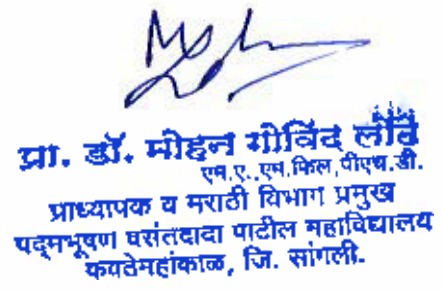 प्रा. डॉ. मोहन गोविंद
एम.ए.,एम.फिल,पीएच.डी.
प्राध्यापक व मराठी विभाग प्रमुख
पद्मभूषण वसंतदादा पाटील महाविद्यालय
कवठेमहांकाळ, जि. सांगली.